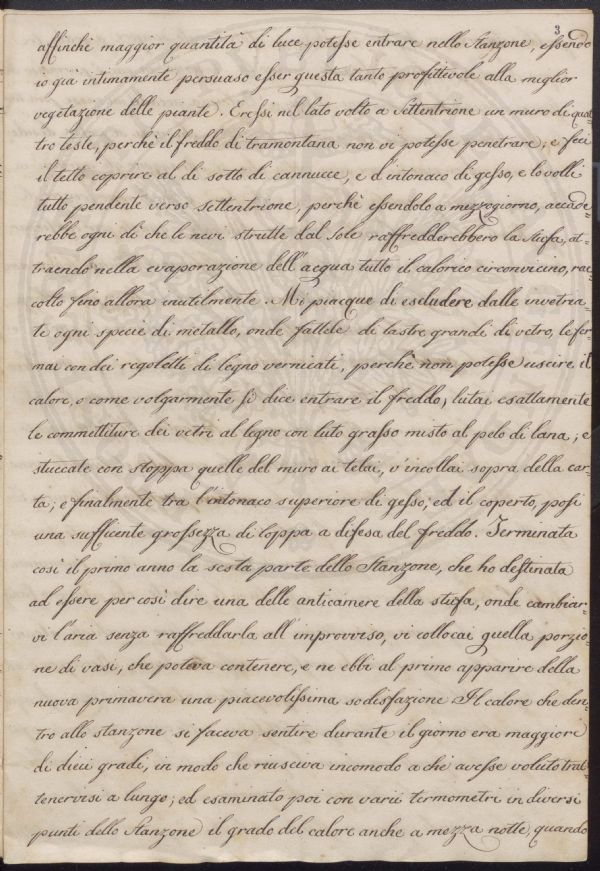 3
affinchè maggior quantità di luce potesse entrare nello Stanzone, essendo
io già intimamente persuaso esser questa tanto profittevole alla miglior
vegetazione delle piante. Eressi nel lato volto a Settentrione un muro di quat-
tro teste, perchè il freddo di tramontana non vi potesse penetrare; e feci
il tetto coprire al di sotto di cannucce, e d'intonaco di gesso, e lo volli
tutto pendente verso settentrione, perchè essendolo a mezzogiorno, accade-
rebbe ogni dì che le nevi strutte dal Sole raffredderebbero la stufa, at-
traendo nella evaporazione dell'acqua tutto il calorico circonvicino, rac-
colto fino allora inutilmente. Mi piacque di escludere dalle invetria-
te ogni specie di metallo, onde fattele di lastre grandi di vetro, le fer-
mai con dei regoletti di legno vernicati, perchè non potesse uscire il
calore, o come volgarmente si dice entrare il freddo, lutai esattamente
le commettiture dei vetri al legno con luto grasso misto al pelo di lana; e
stuccate con stoppa quelle del muro ai telai, v'incollai sopra della car-
ta; e finalmente tra l'intonaco superiore di gesso, ed il coperto, posi
una sufficente grossezza di loppa a difesa del freddo. Terminata
così il primo anno la sesta parte dello Stanzone, che ho destinata
ad essere per così dire una delle anticamere della stufa, onde cambiar-
vi l'aria senza raffreddarla all'improvviso, vi collocai quella porzio-
ne di vasi, che poteva contenere, e ne ebbi al primo apparire della
nuova primavera una piacevolissima sodisfazione Il calore che den-
tro allo stanzone si faceva sentire durante il giorno era maggiore
di dieci gradi, in modo che riusciva incomodo a chi avesse voluto trat-
tenervisi a lungo; ed esaminato poi con varii termometri in diversi
punti dello Stanzone il grado del calore anche a mezza notte, quando